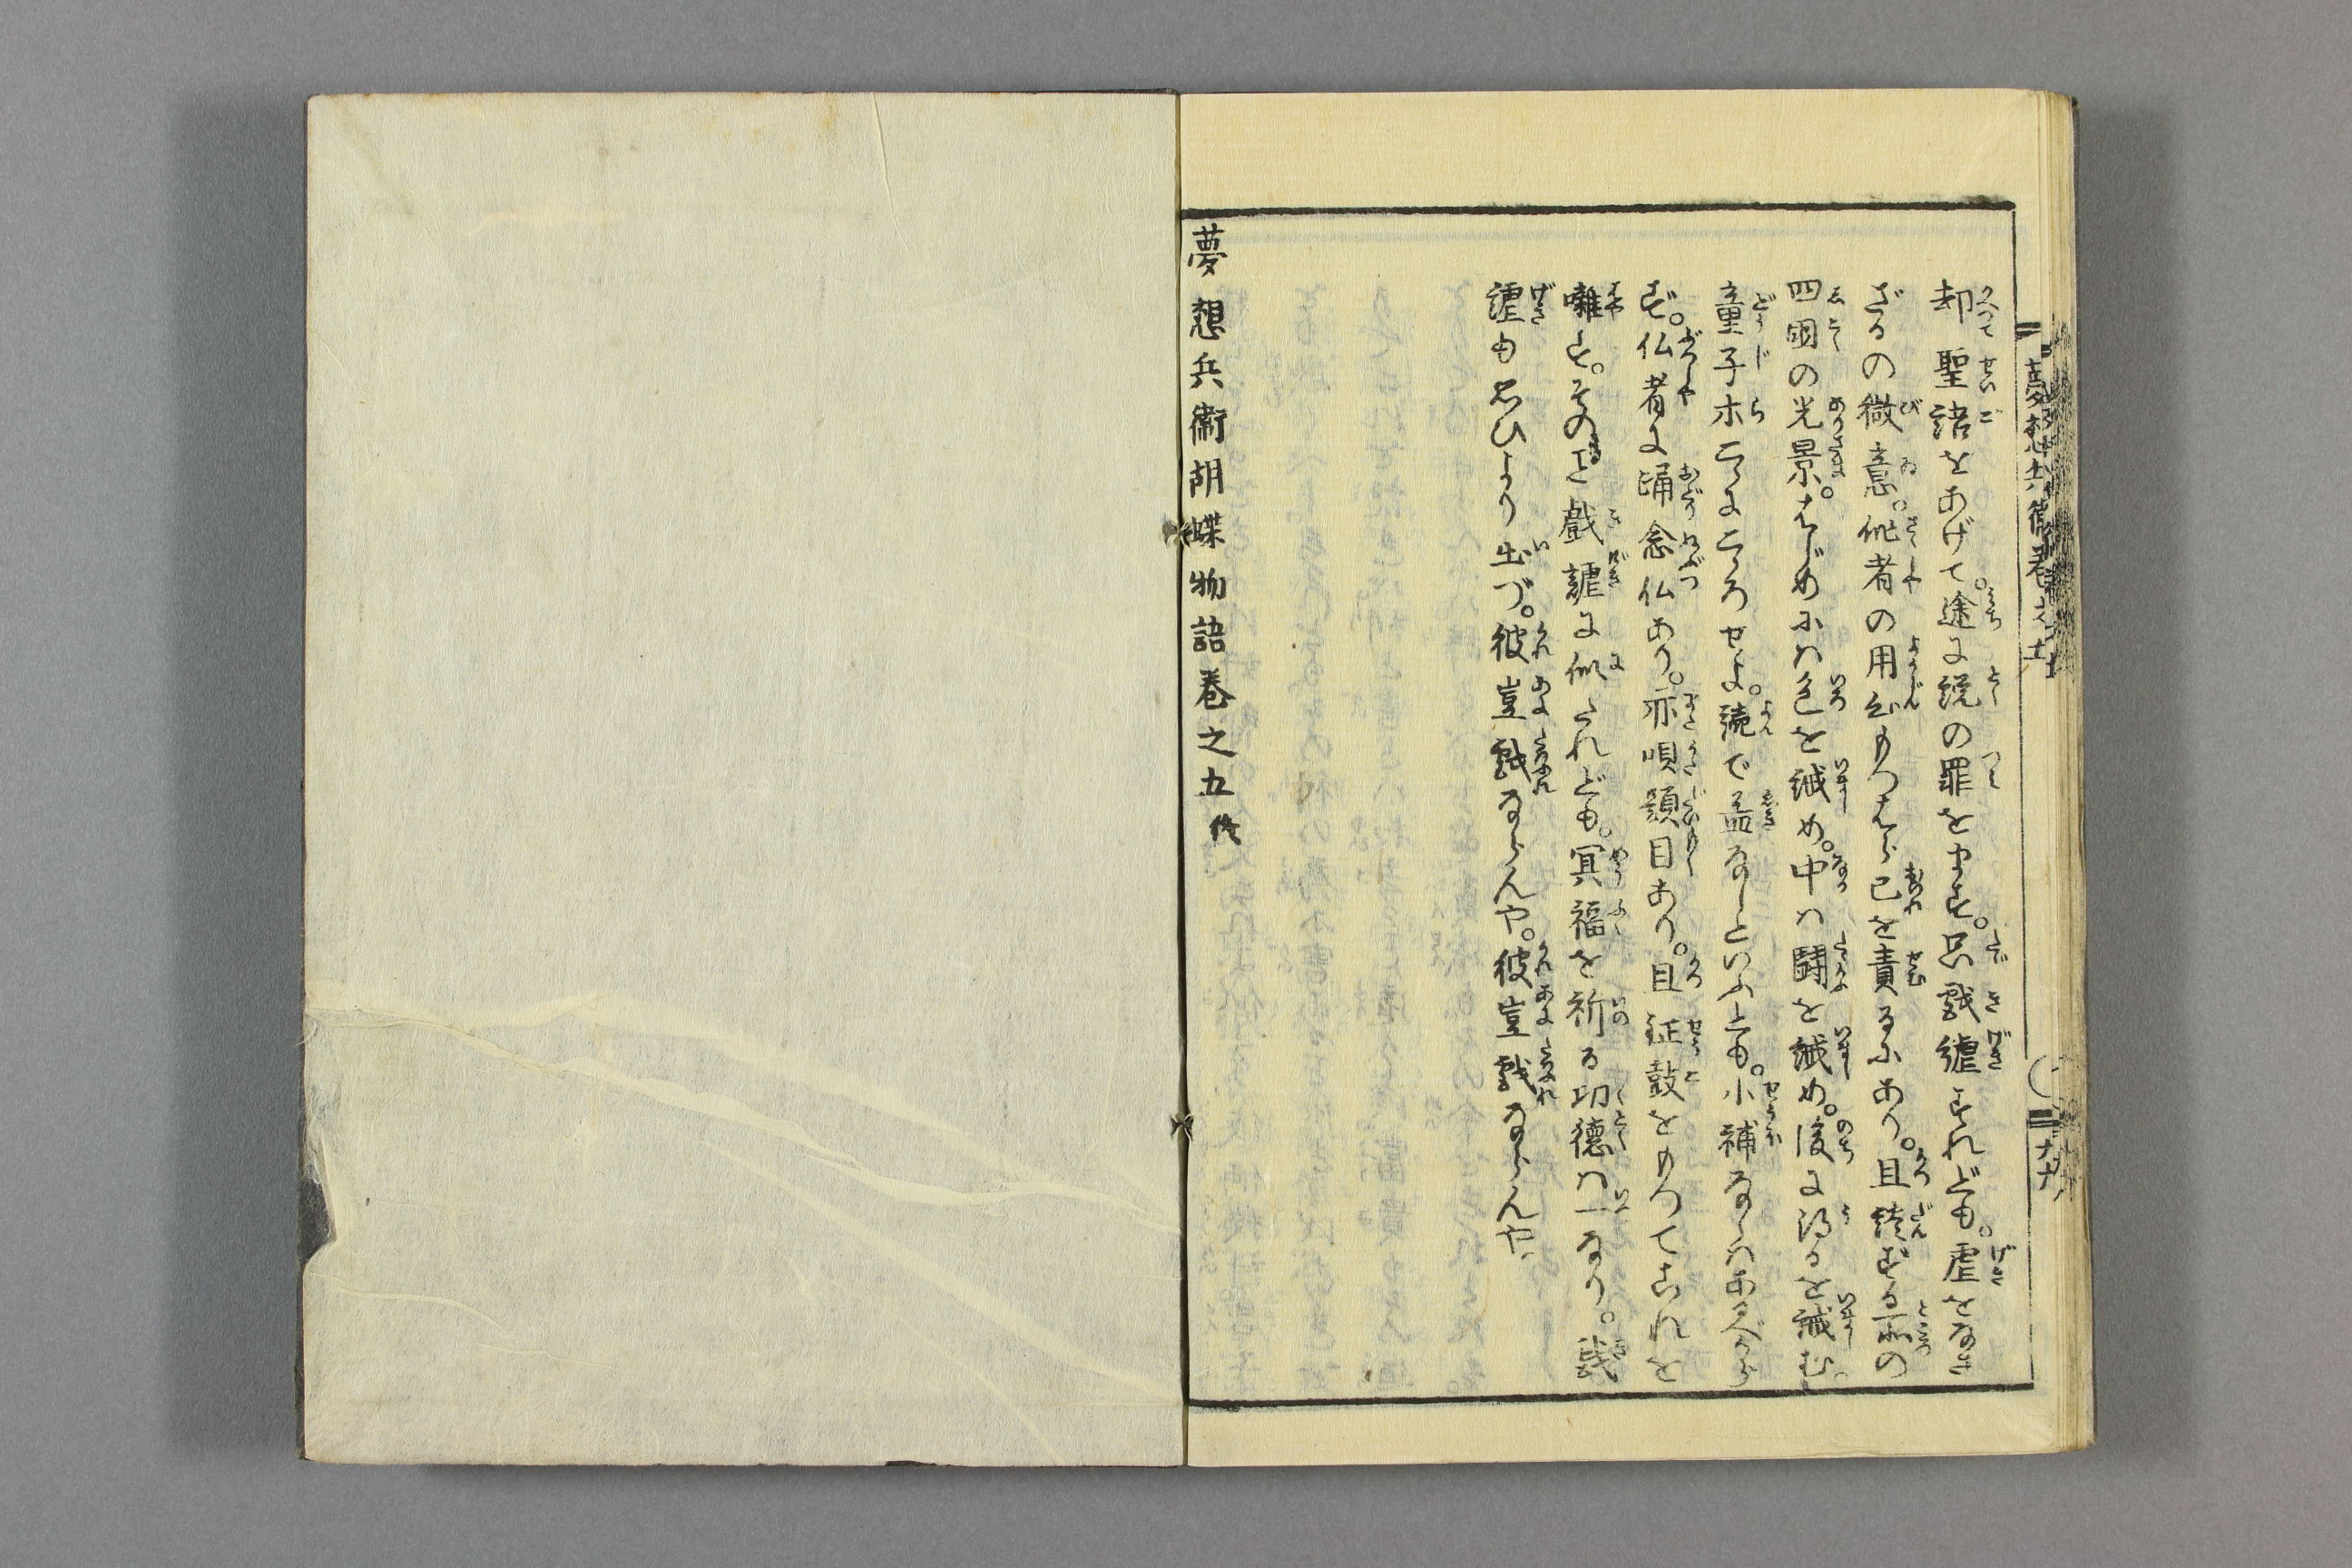 却聖語をあげて。途に説の罪をます。只戯謔すれども。虐をなさ
ざるの微意。作者の用心もつはら己を責るにあり。且読ずる所の
四国の光景。はじめには色を誡め。中は闘を誡め。後に得るを誡む。
童子ホこゝにこゝろせよ。読で益なしといふとも。小補なくはあるべから
ず。仏者に踊念仏あり。亦唄題目あり。且鉦鼓をもつてこれを
囃す。その戯謔に似たれども。冥福を祈る功徳は一なり。戯
謔も思ひより出づ。彼豈戯ならんや。彼豈戯ならんや
夢想兵衛胡蝶物語巻之五終
夢想兵衛巻之五